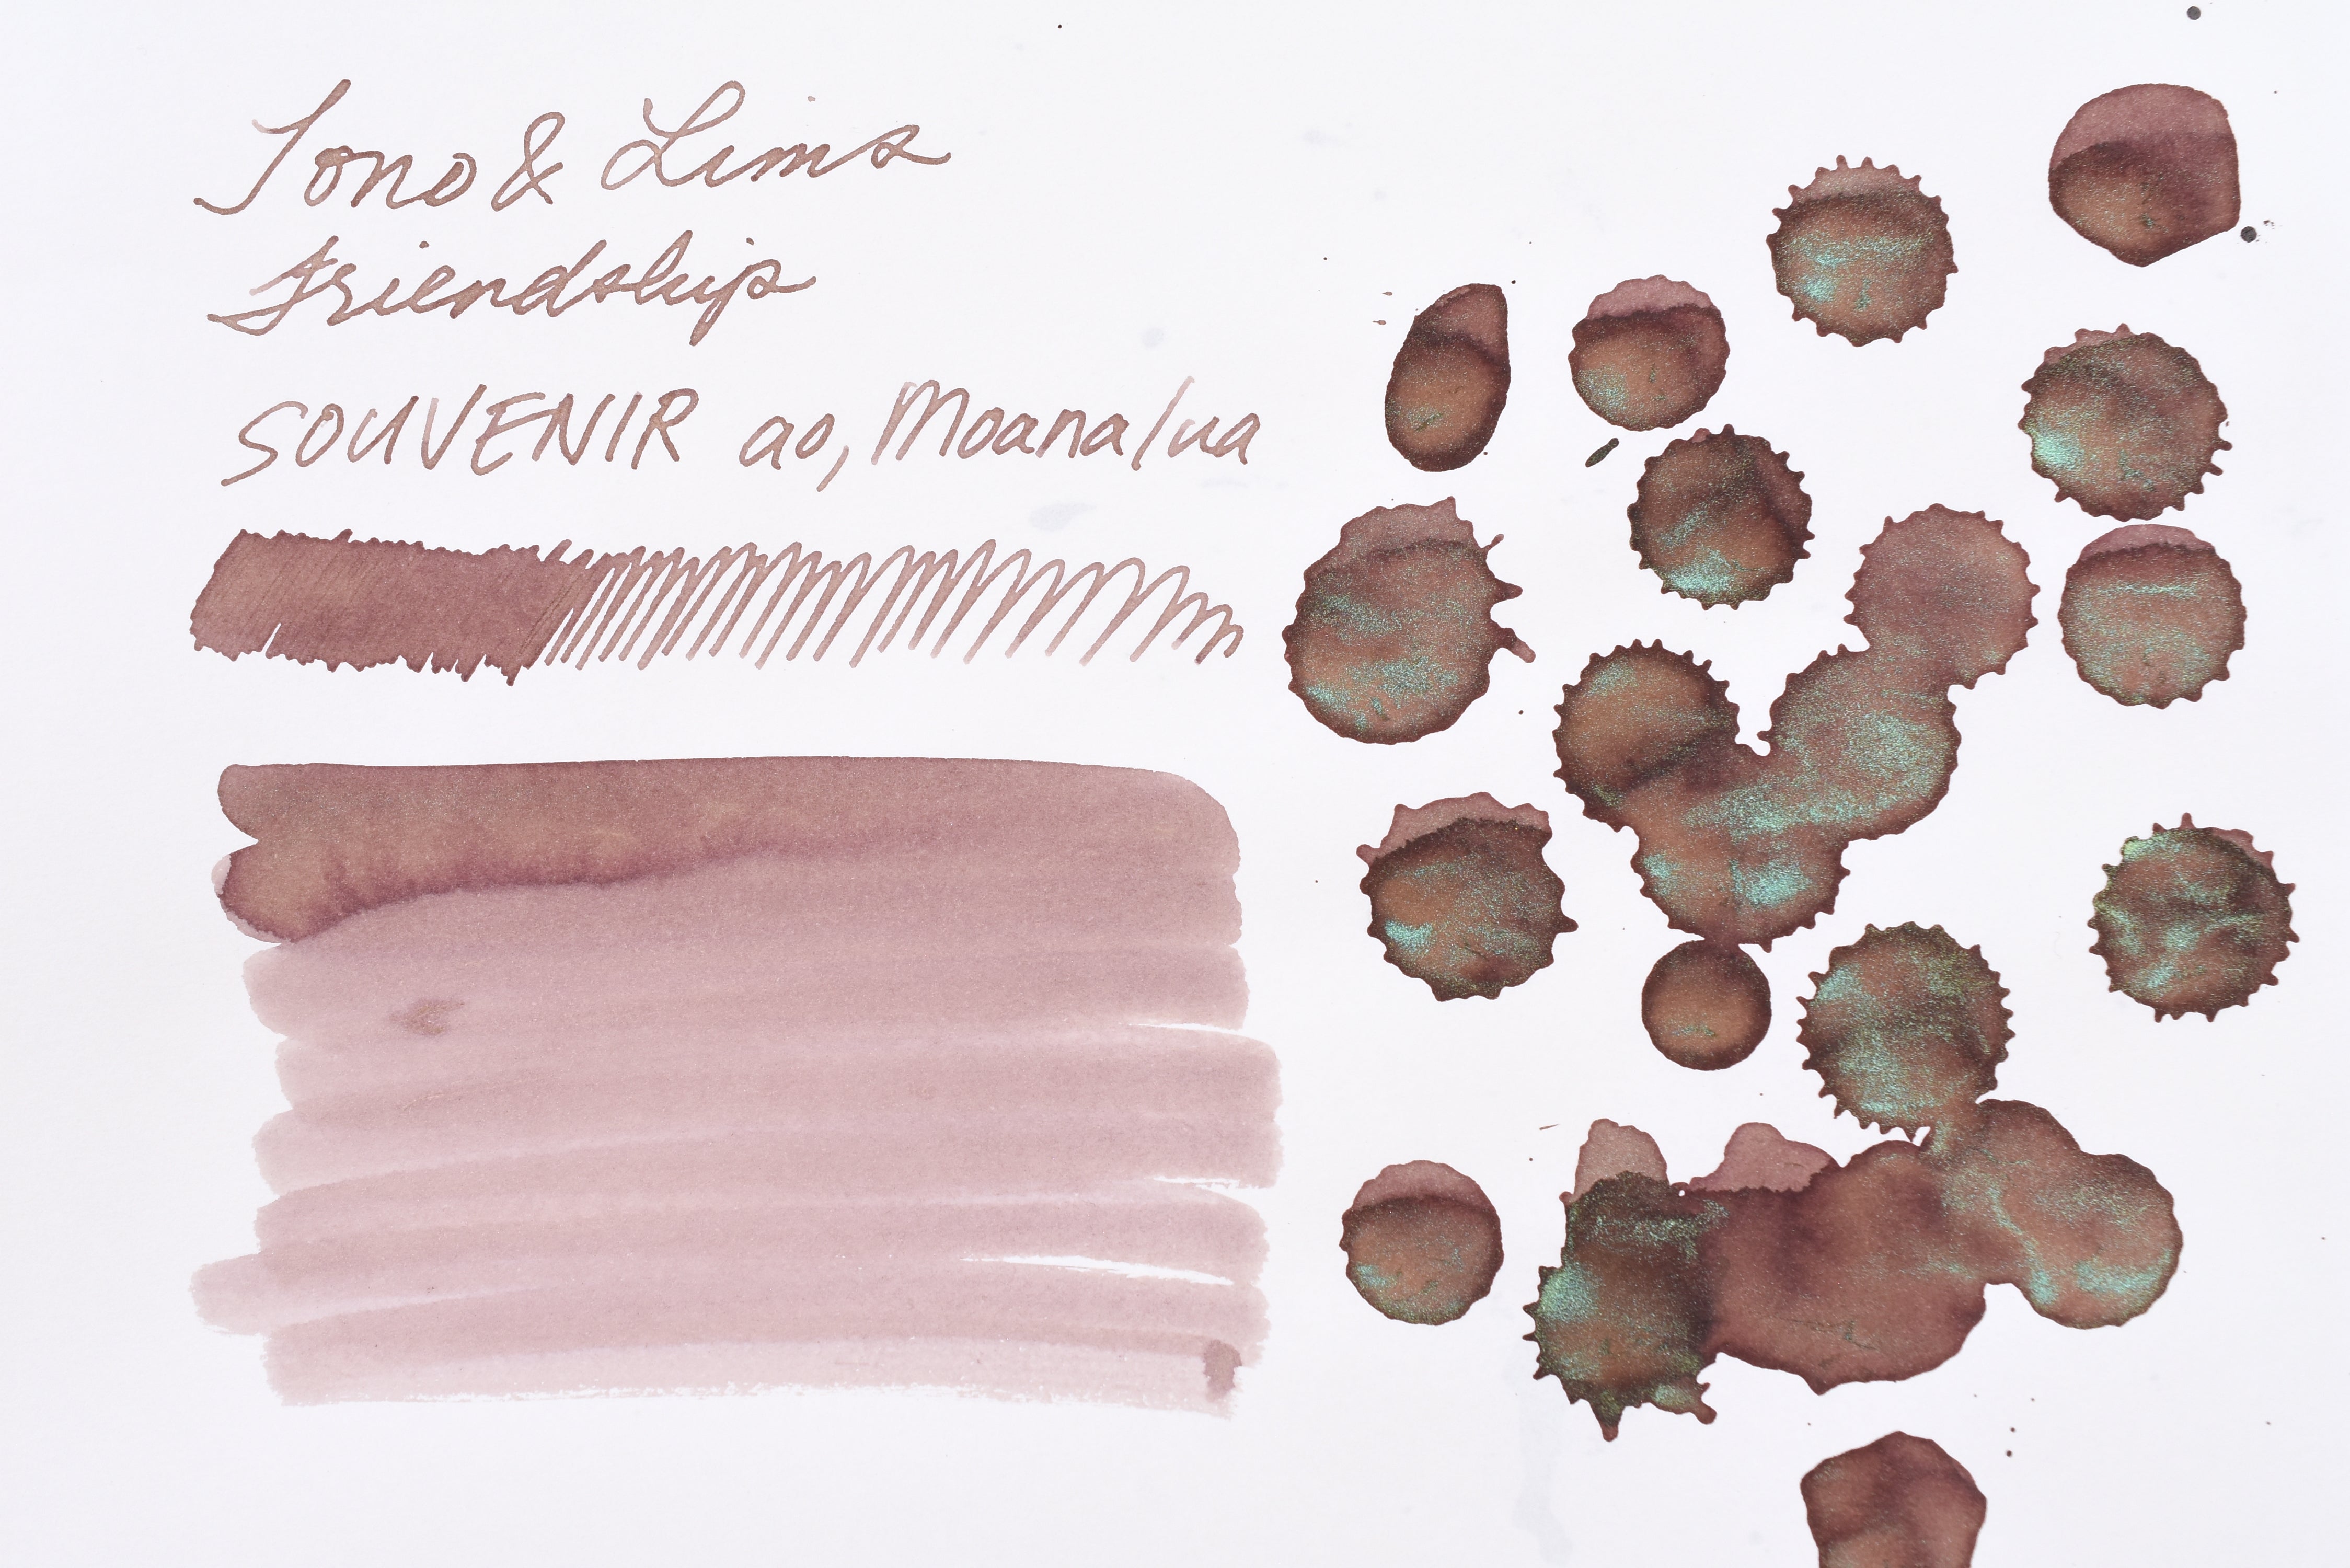 Tono & Lims
Friendship
SOUVENIR ao, Moanalua